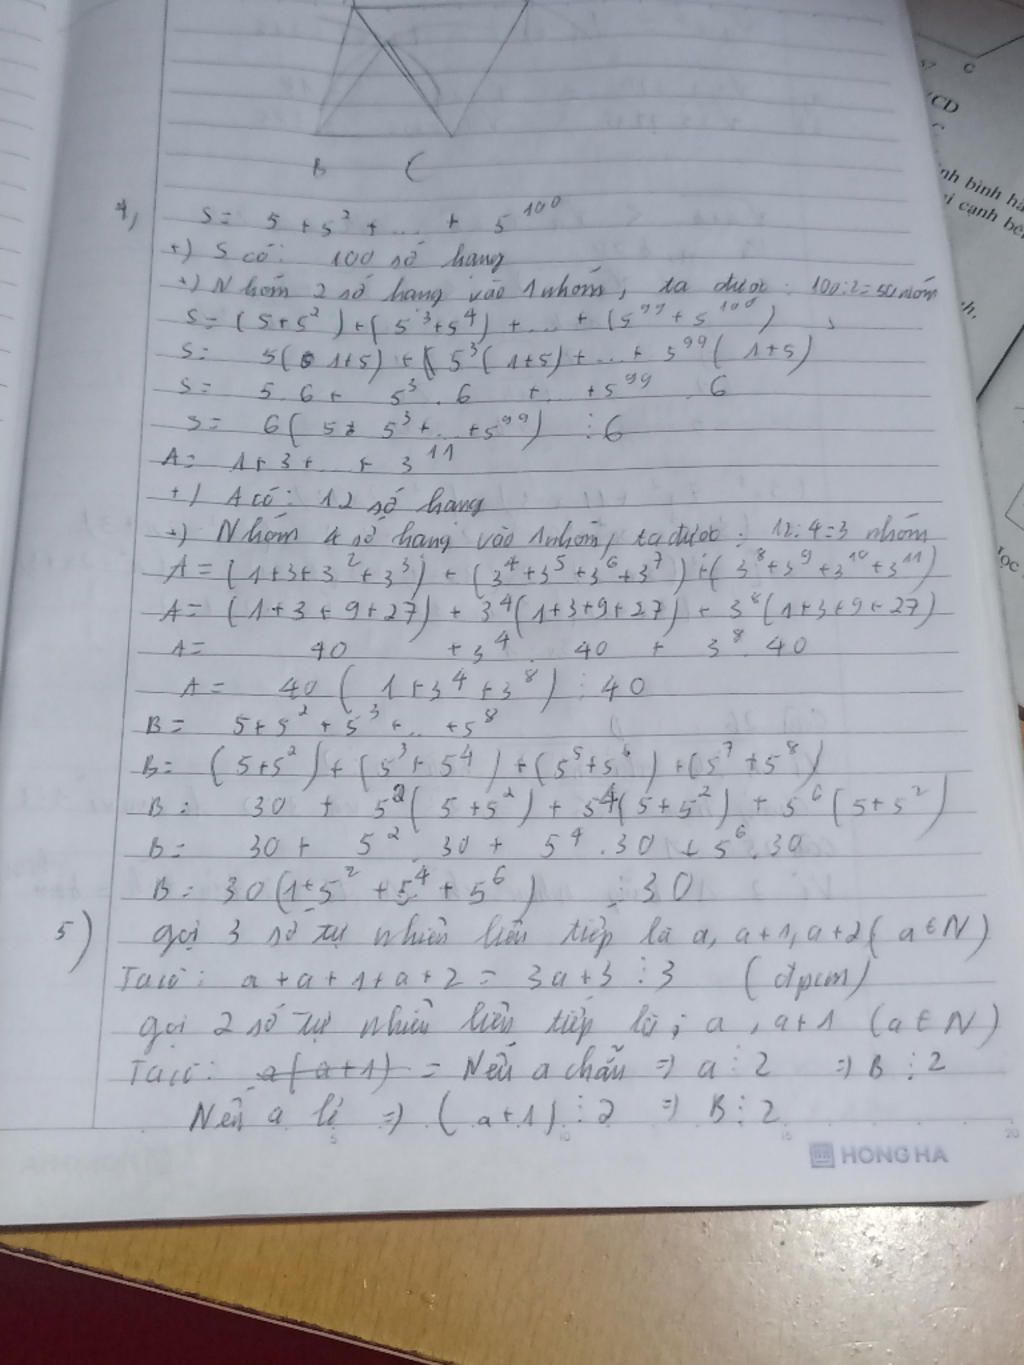 B C
4,
S = 5 + 5² + ... + 5¹⁰⁰
+) S có: 100 số hang
+) Nhóm 2 số hang vào 1 nhóm, ta được: 100:2=50 nhóm
S = (5+5²)+(5³+5⁴) + ... + (5⁹⁹ + 5¹⁰⁰)
S = 5(1+5) + 5³(1+5) + ... + 5⁹⁹(1+5)
S = 5.6 + 5³.6 + ... +5⁹⁹.6
S = 6(5+ 5³+...+5⁹⁹) ⋮ 6
A = 1+3+ ... + 3¹¹
+) A có: 12 số hang
+) Nhóm 4 số hang vào 1 nhóm, ta được: 12:4=3 nhóm
A = (1+3+3²+3³) + (3⁴+3⁵+3⁶+3⁷)+(3⁸+3⁹+3¹⁰+3¹¹)
A = (1+3+9+27) + 3⁴(1+3+9+27) + 3⁸(1+3+9+27)
A = 40 +3⁴.40 + 3⁸.40
A = 40(1+3⁴+3⁸) ⋮ 40
B = 5+5²+5³+...+5⁸
B = (5+5²)+(5³+5⁴)+(5⁵+5⁶)+(5⁷+5⁸)
B = 30 + 5²(5+5²) + 5⁴(5+5²) + 5⁶(5+5²)
B = 30 + 5².30 + 5⁴.30 + 5⁶.30
B = 30(1+5²+5⁴+5⁶) ⋮ 30
5) gọi 3 số tự nhiên liên tiếp là a, a+1, a+2 (a∈N)
Ta có: a+a+1+a+2 = 3a+3 ⋮ 3 (đpcm)
gọi 2 số tự nhiên liên tiếp là; a, a+1 (a∈N)
Ta có: a(a+1) = Nếu a chẵn => a ⋮ 2 => B ⋮ 2
Nếu a lẻ => (a+1) ⋮ 2 => B ⋮ 2
5 10 15 20
HONG HA
C
CD
C
nh bình hà
i cạnh bê
h.
ọc